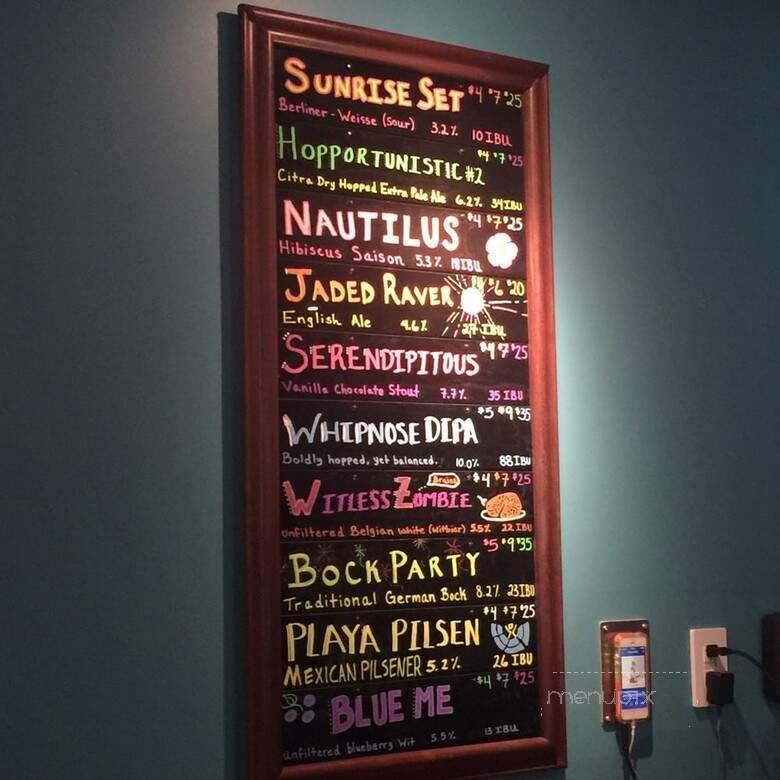 SUNRISE SET $4 $7 $25
Berliner-Weisse (sour) 3.2% 10 IBU
HOPPORTUNISTIC #2 $4 $7 $25
Citra Dry Hopped Extra Pale Ale 6.2% 34 IBU
NAUTILUS $4 $7 $25
Hibiscus Saison 5.3% 18 IBU
JADED RAVER $4 $6 $20
English Ale 4.6% 27 IBU
SERENDIPITOUS $4 $7 $25
Vanilla Chocolate Stout 7.7% 35 IBU
WHIPNOSE DIPA $5 $9 $35
Boldly hopped, yet balanced. 10.0% 88 IBU
WITLESS ZOMBIE Brains $4 $7 $25
unfiltered Belgian white (witbier) 5.5% 22 IBU
BOCK PARTY $5 $9 $35
Traditional German Bock 8.2% 23 IBU
PLAYA PILSEN $4 $7 $25
MEXICAN PILSENER 5.2% 26 IBU
BLUE ME $4 $7 $25
unfiltered blueberry Wit 5.5% 13 IBU
menupix